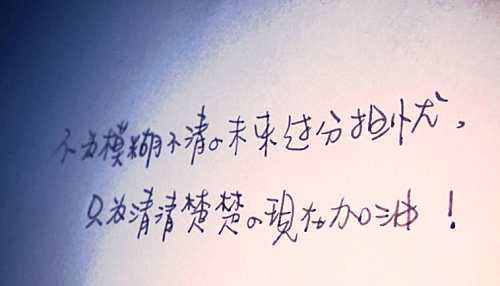 不为模糊不清の未来过分担忧，
只为清清楚楚の现在加油！